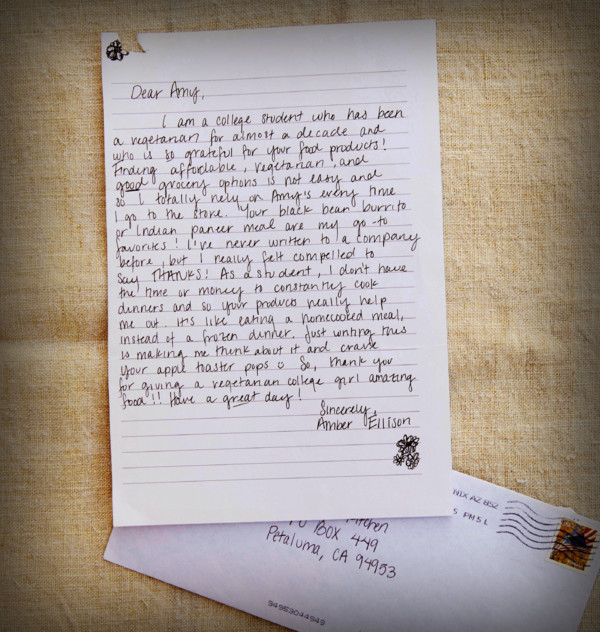 Dear Amy,
I am a college student who has been
a vegetarian for almost a decade and
who is so grateful for your food products!
Finding affordable, vegetarian, and
good grocery options is not easy and
so I totally rely on Amy's every time
I go to the store. Your black bean burrito
or Indian paneer meal are my go-to
favorites! I've never written to a company
before, but I really felt compelled to
say THANKS! As a student, I don't have
the time or money to constantly cook
dinners and so your products really help
me out. It's like eating a homecooked meal,
instead of a frozen dinner. Just writing this
is making me think about it and crave
your apple toaster pops ☺ So, thank you
for giving a vegetarian college girl amazing
food!! Have a great day!
Sincerely,
Amber Ellison
NIX AZ 852
5 PM 5 L
Kitchen
PO BOX 449
Petaluma, CA 94953
94953044949